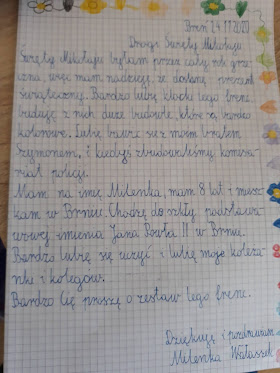 Brań 24.11.2020
Drogi Święty Mikołaju
Święty Mikołaju byłam przez cały rok grze-
czna, więc mam nadzieję, że dostanę prezent
świąteczny. Bardzo lubię klocki lego
buduję z nich duże budowle, które są bardzo
kolorowe. Lubię bawić się z moim bratem
Szymonem, i kiedyś zbudowaliśmy komisa-
riat policji.
Mam na imię Milenka, mam 8 lat i miesz-
kam w Brnou. Chodzę do szkły podstawo-
wej imienia Jana Pawła II w
Bardzo lubię się uczyć i lubię moje koleża-
nki i kolegów.
Bardzo Cię proszę o zestaw lego
Dziękuję i pozdrawiam
Milenka Wałaszek